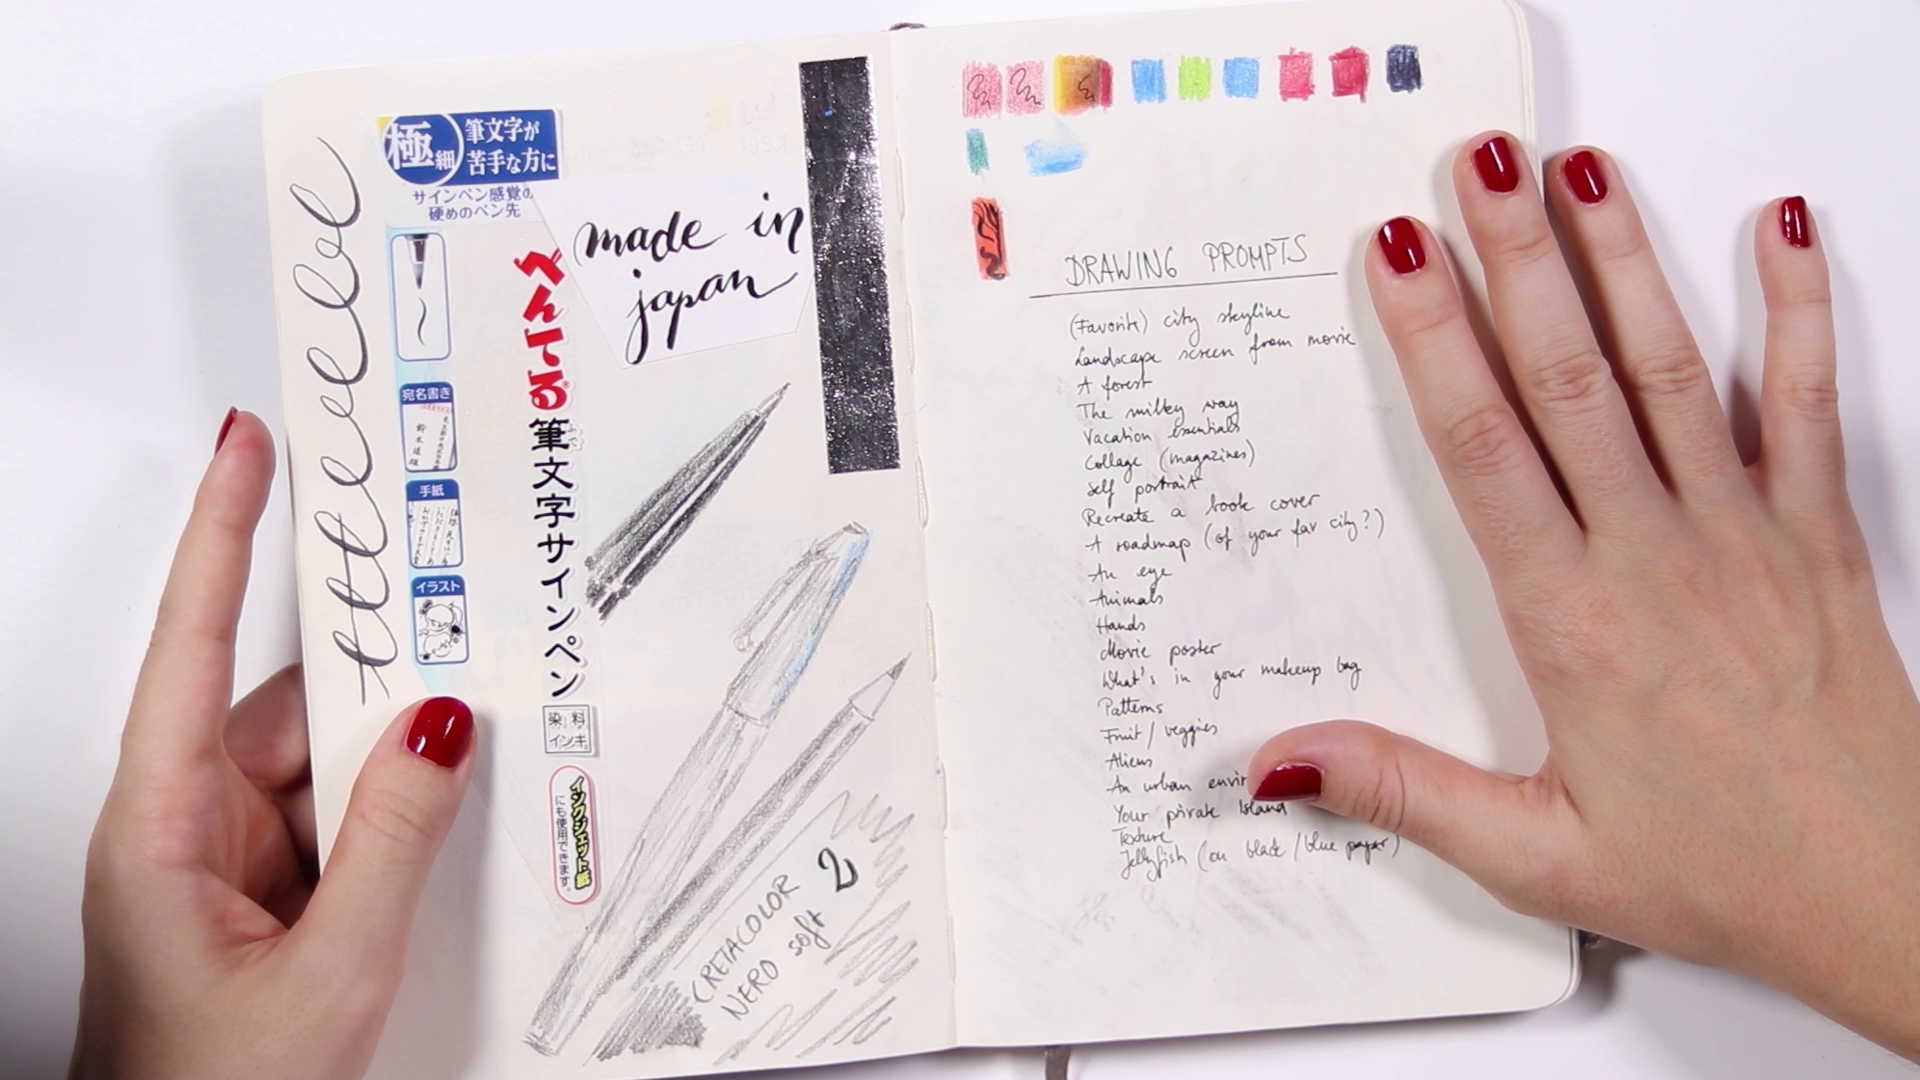 極細
筆文字が
苦手な方に
サインペン感覚の
硬めのペン先
宛名書き
手紙
イラスト
ぺんてる
筆文字サインペン
染料
インキ
インクジェット紙
にも使用できます。
made in
japan
CRETACOLOR
NERO soft 2
DRAWING PROMPTS
(Favorite) city skyline
Landscape screen from movie
A forest
The milky way
Vacation essentials
Collage (magazines)
Self portrait
Recreate a book cover
A roadmap (of your fav city?)
An eye
Animals
Hands
Movie poster
What's in your makeup bag
Patterns
Fruit / veggies
Aliens
An urban envir
Your private Island
Texture
Jellyfish (on black / blue paper)